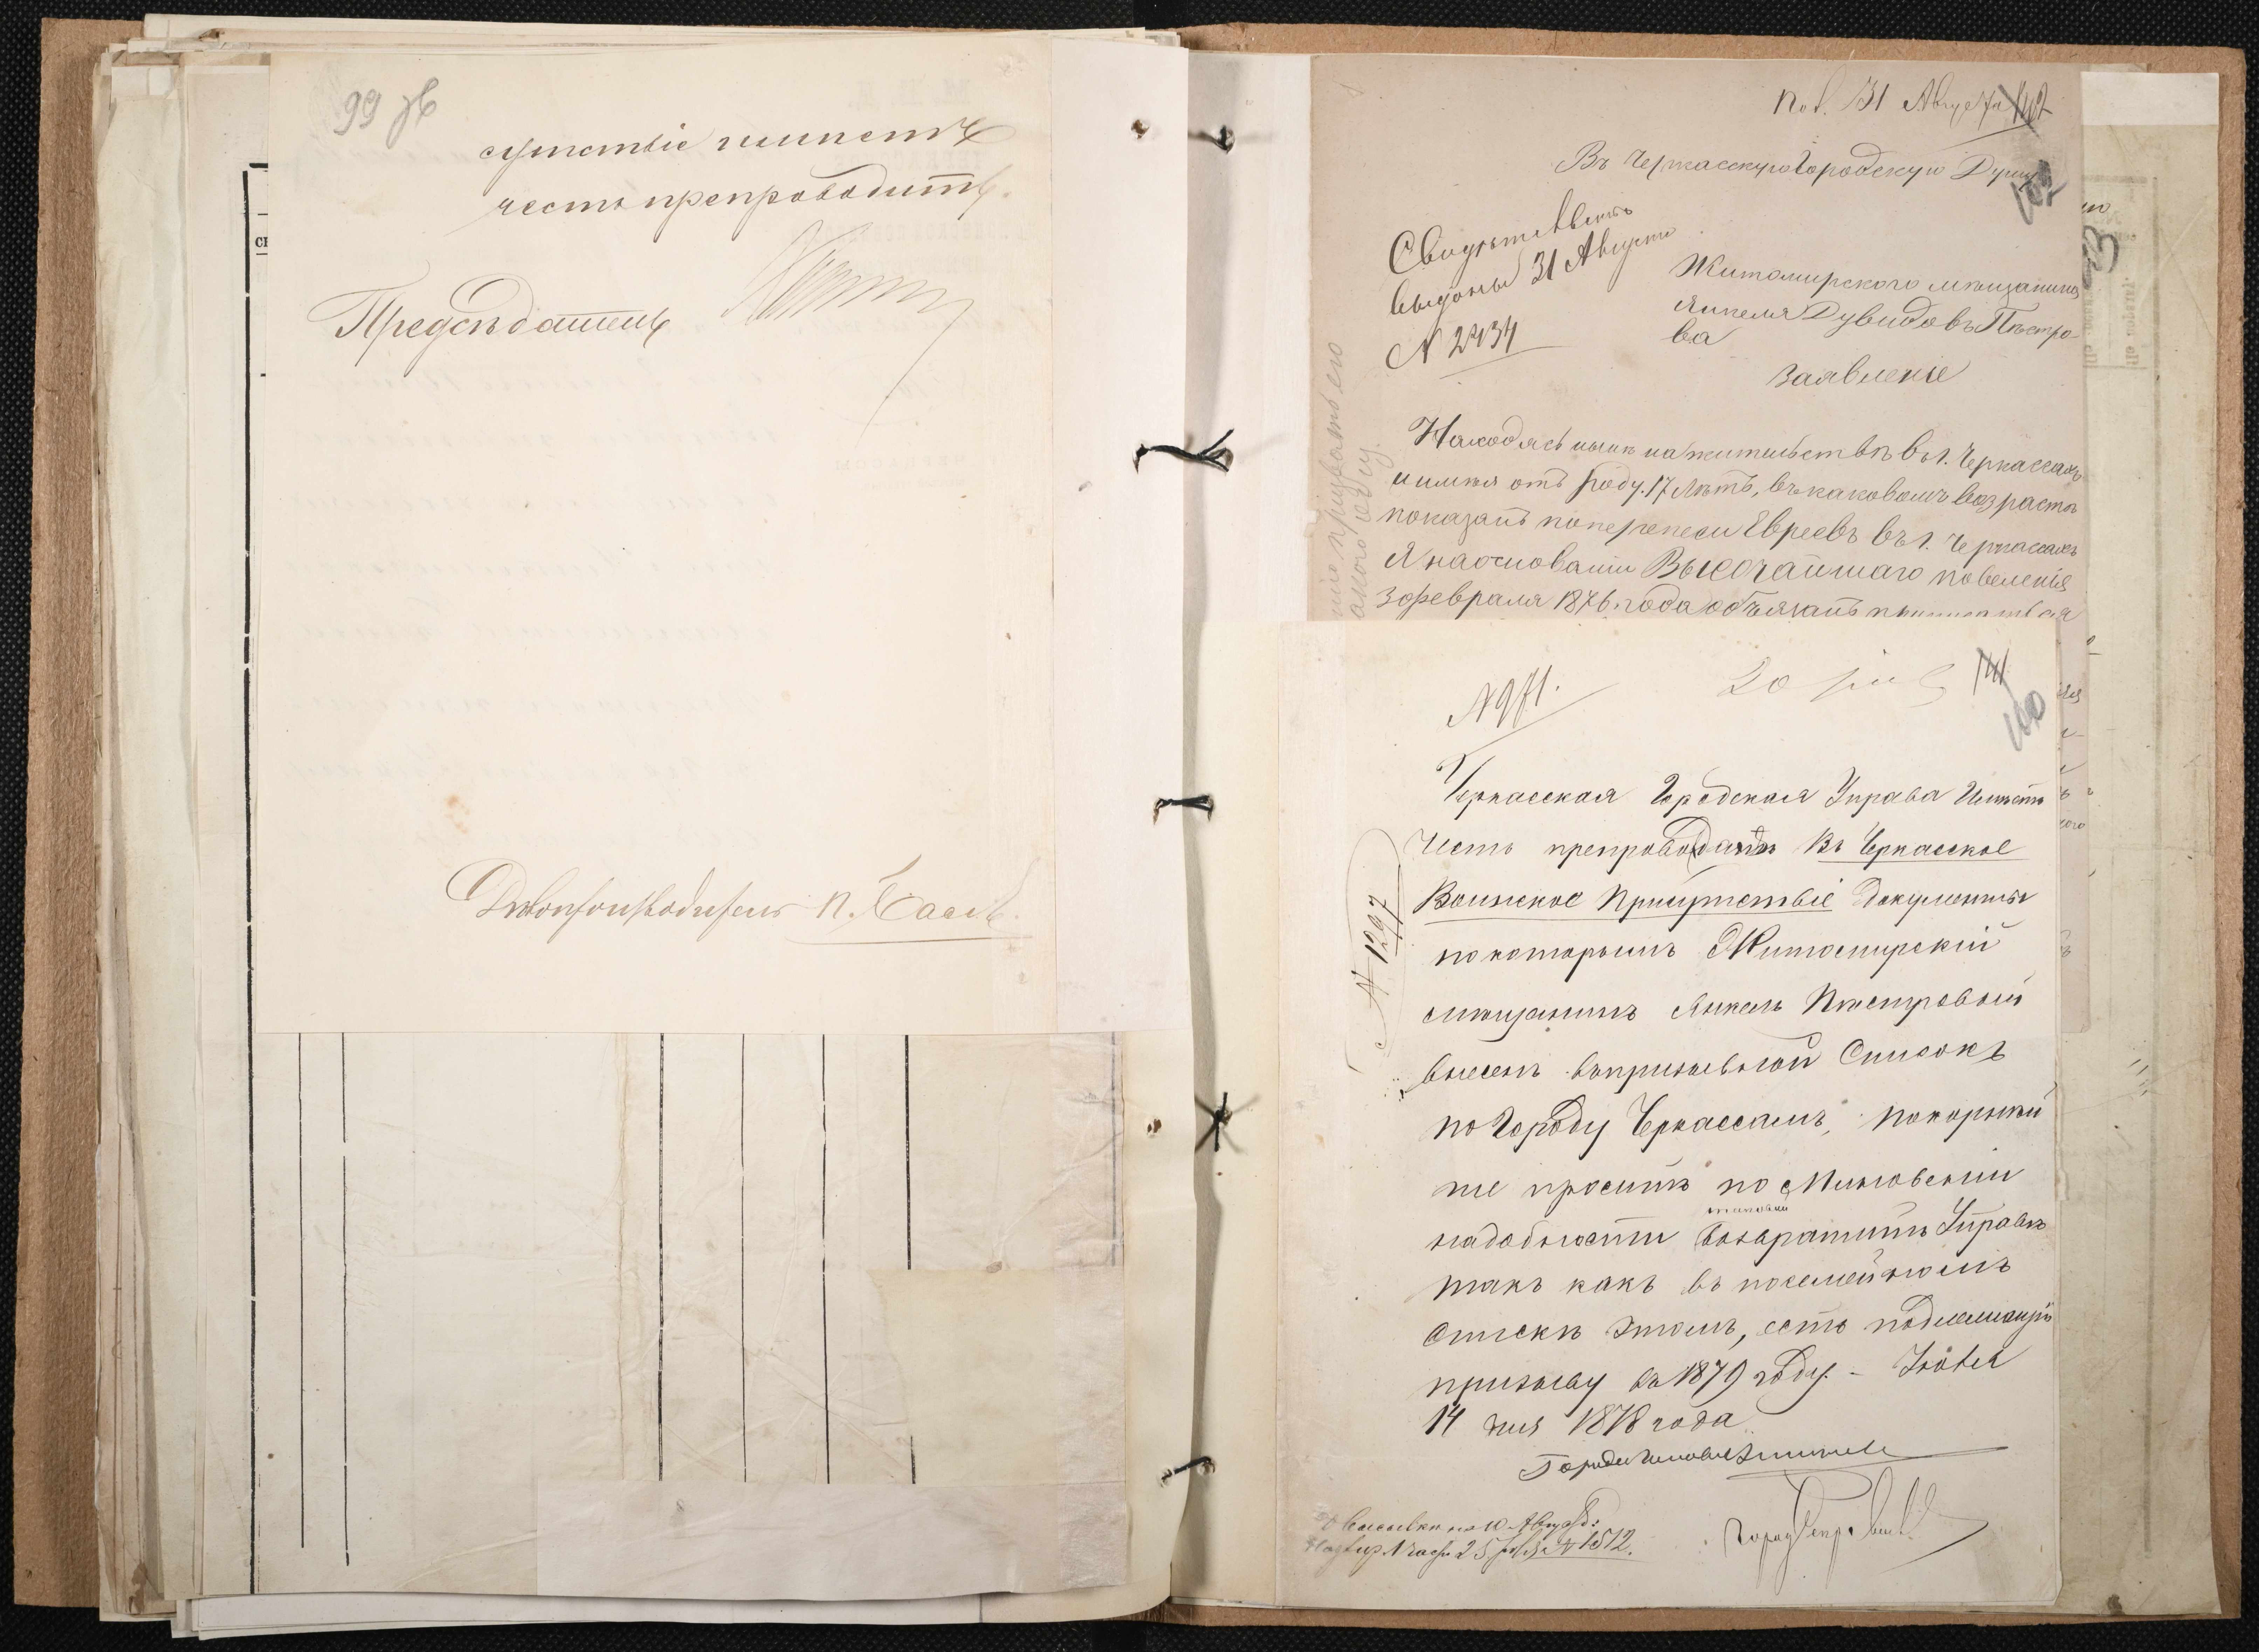 99 зв
сутствіе имѣетъ
честь препроводить.
Предсѣдатель
Дѣлопроизводитель П.
Пол. 31 Августа
142
Въ Черкасскую Городскую Думу
102
Свидѣтельство
выдано 31 Августа
N 2434
Житомирскаго мѣщанина
Янкеля Дувидовъ Пѣстро-
ва
Заявленіе
Находясь нынѣ на жительствѣ въ г. Черкассахъ
и имѣя отъ роду 17 лѣтъ, въ каковомъ возрастѣ
показанъ по переписи Евреевъ въ г. Черкассахъ
Я на основаніи Высочайшаго повеленія
3 февраля 1876 года обязанъ приписаться
N 971.
20
141
100
Черкасская Городская Управа Имѣетъ
Честь препровождать Въ Черкасское
Воинское Присутствіе Документы
по которымъ Житомирскій
мѣщанинъ Янкель Пѣстровой
внесенъ въ призывной Списокъ
по Городу Черкассамъ, покорнѣй
ше проситъ по Миновеніи
таковые
надобности возвратить Управѣ
такъ какъ въ посемейномъ
Спискѣ этомъ, есть подлежащіе
призыву въ 1879 году. - Іюля
14 дня 1878 года
N 1297
25 N 1512.